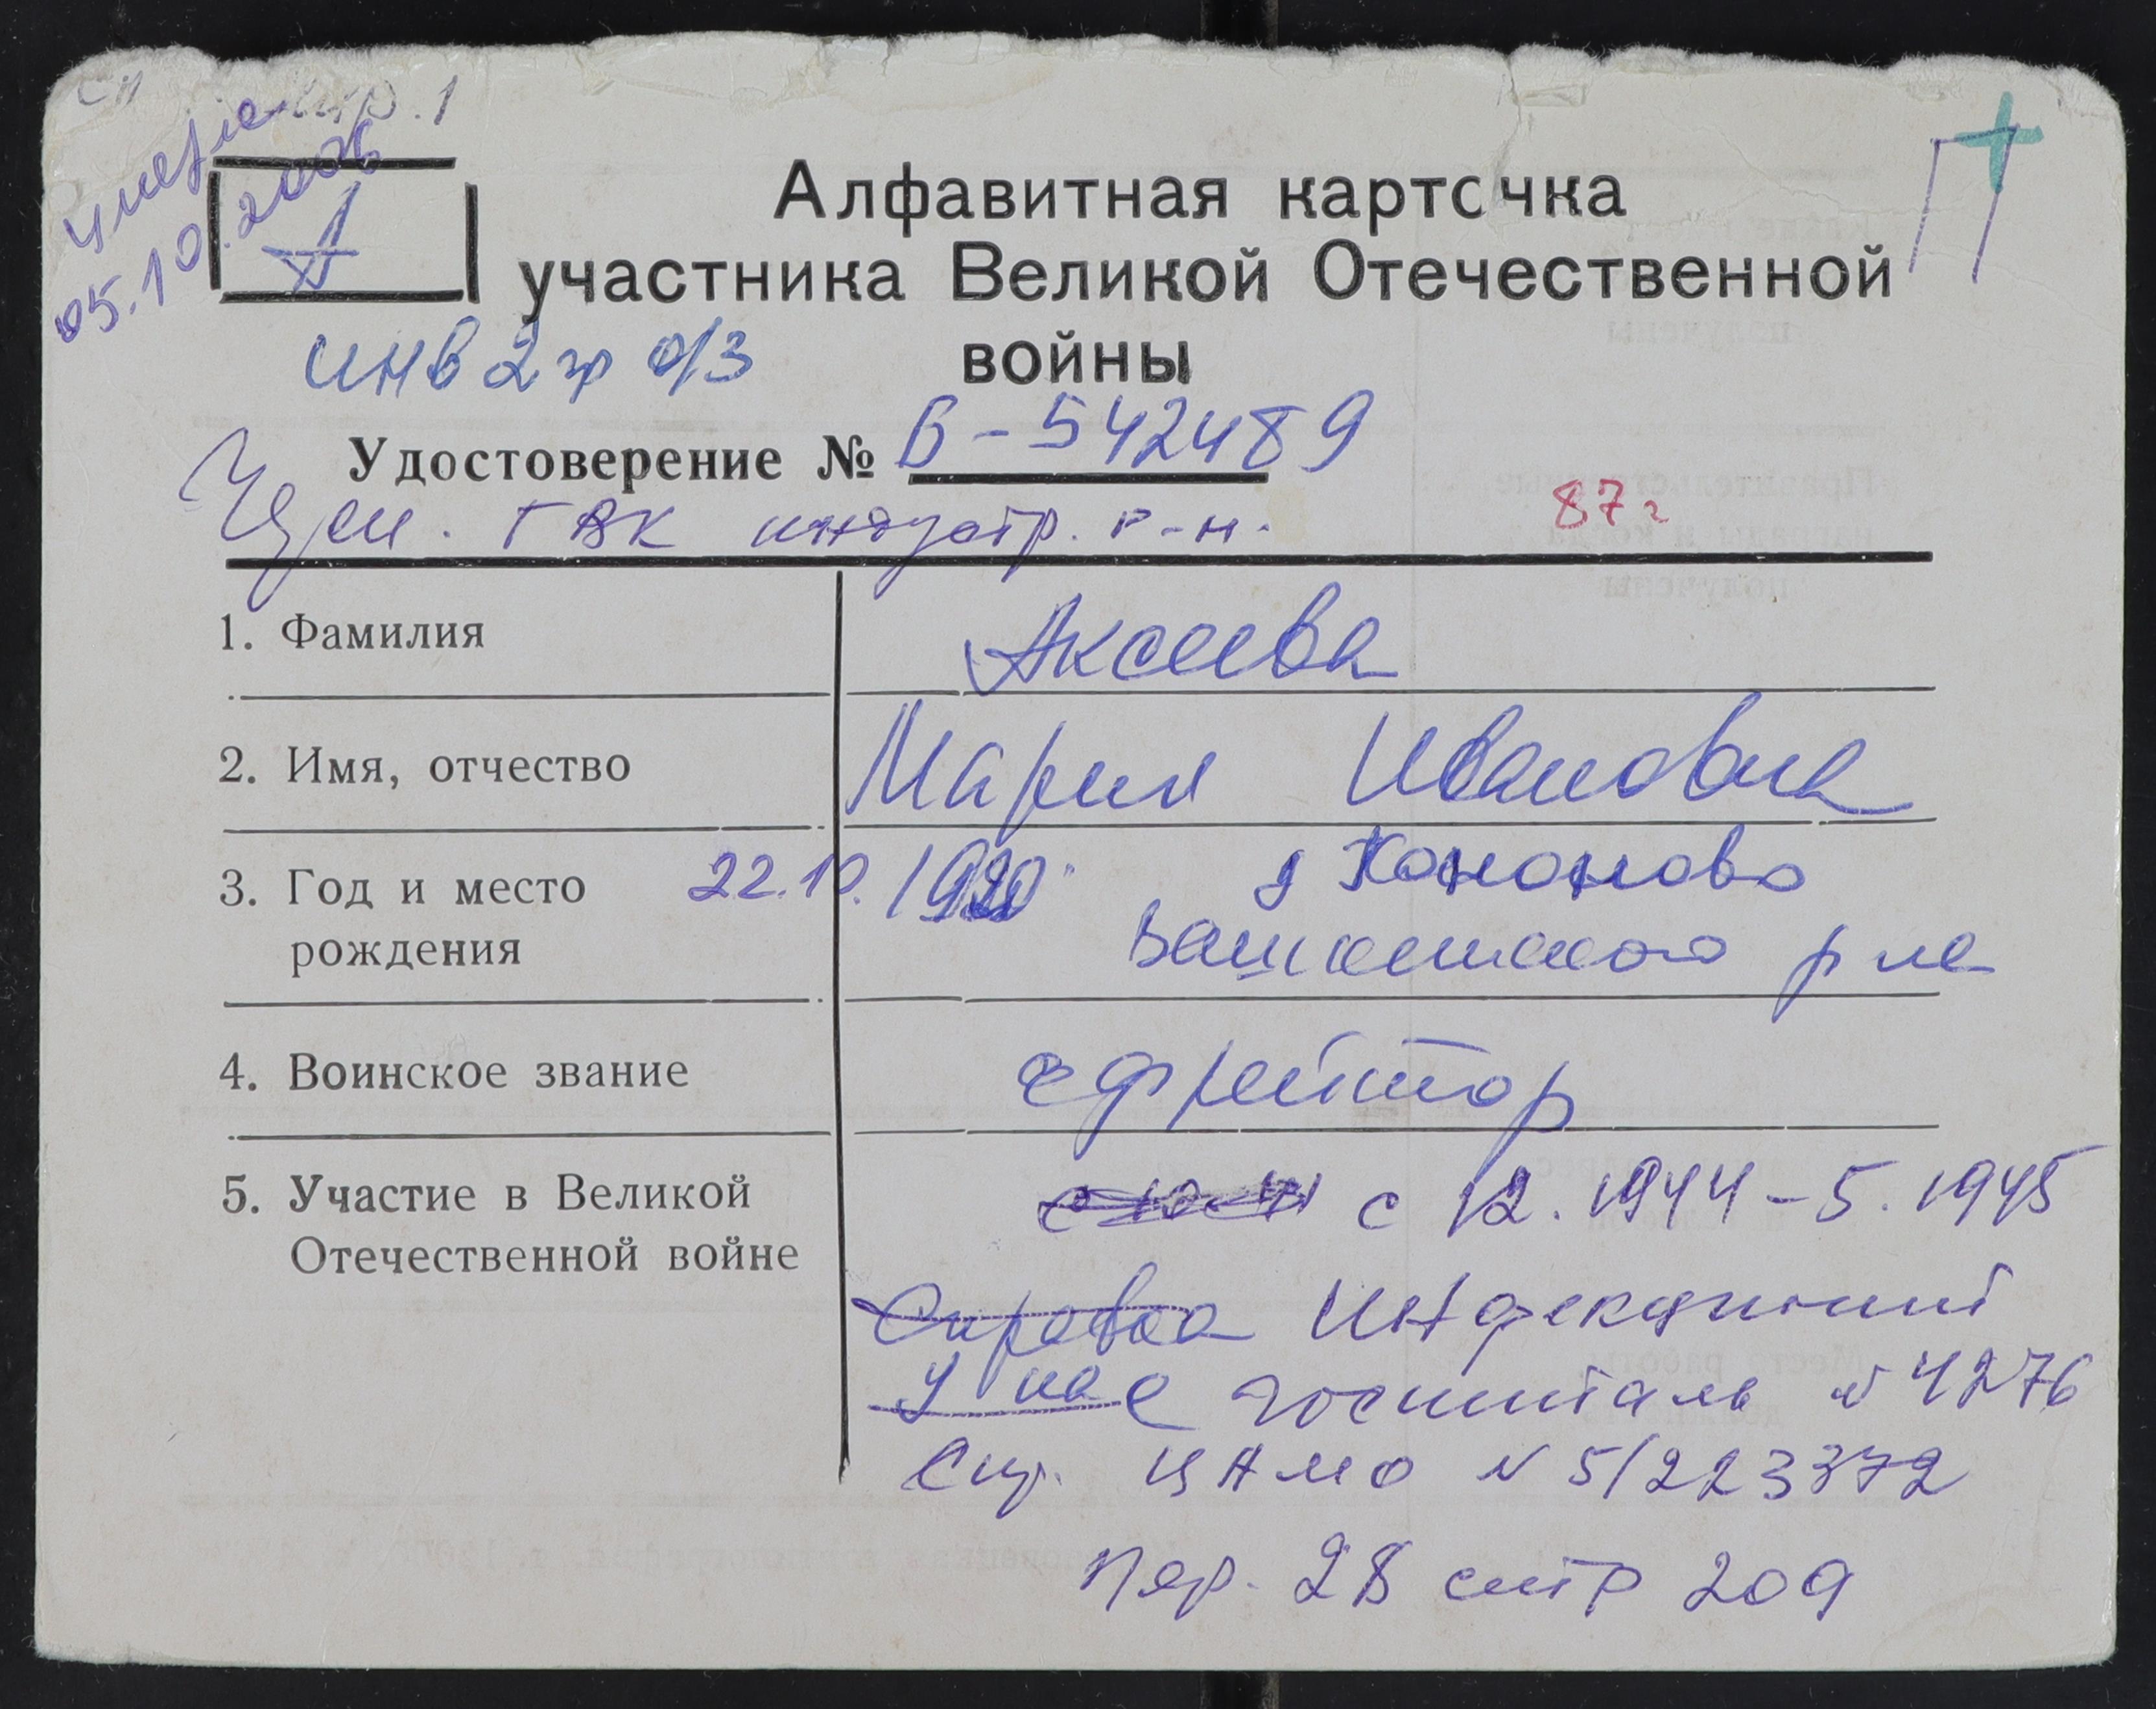 стр. 1
умерла
05.10.2006
А
П
Алфавитная карточка
участника Великой Отечественной
войны
инв 2 гр о/з
Удостоверение № Б-542489
ГВК индустр. р-н.
87г
1. Фамилия Аксеева
2. Имя, отчество Мария Ивановна
3. Год и место рождения 22.10.1920 д Кононово
Вашкинского р на
4. Воинское звание ефрейтор
5. Участие в Великой Отечественной войне с 12.1944-5.1945
Справка Инфекционный
у нее госпиталь № 4276
Спр. ЦАМО № 5/223372
Пер. 28 стр 209